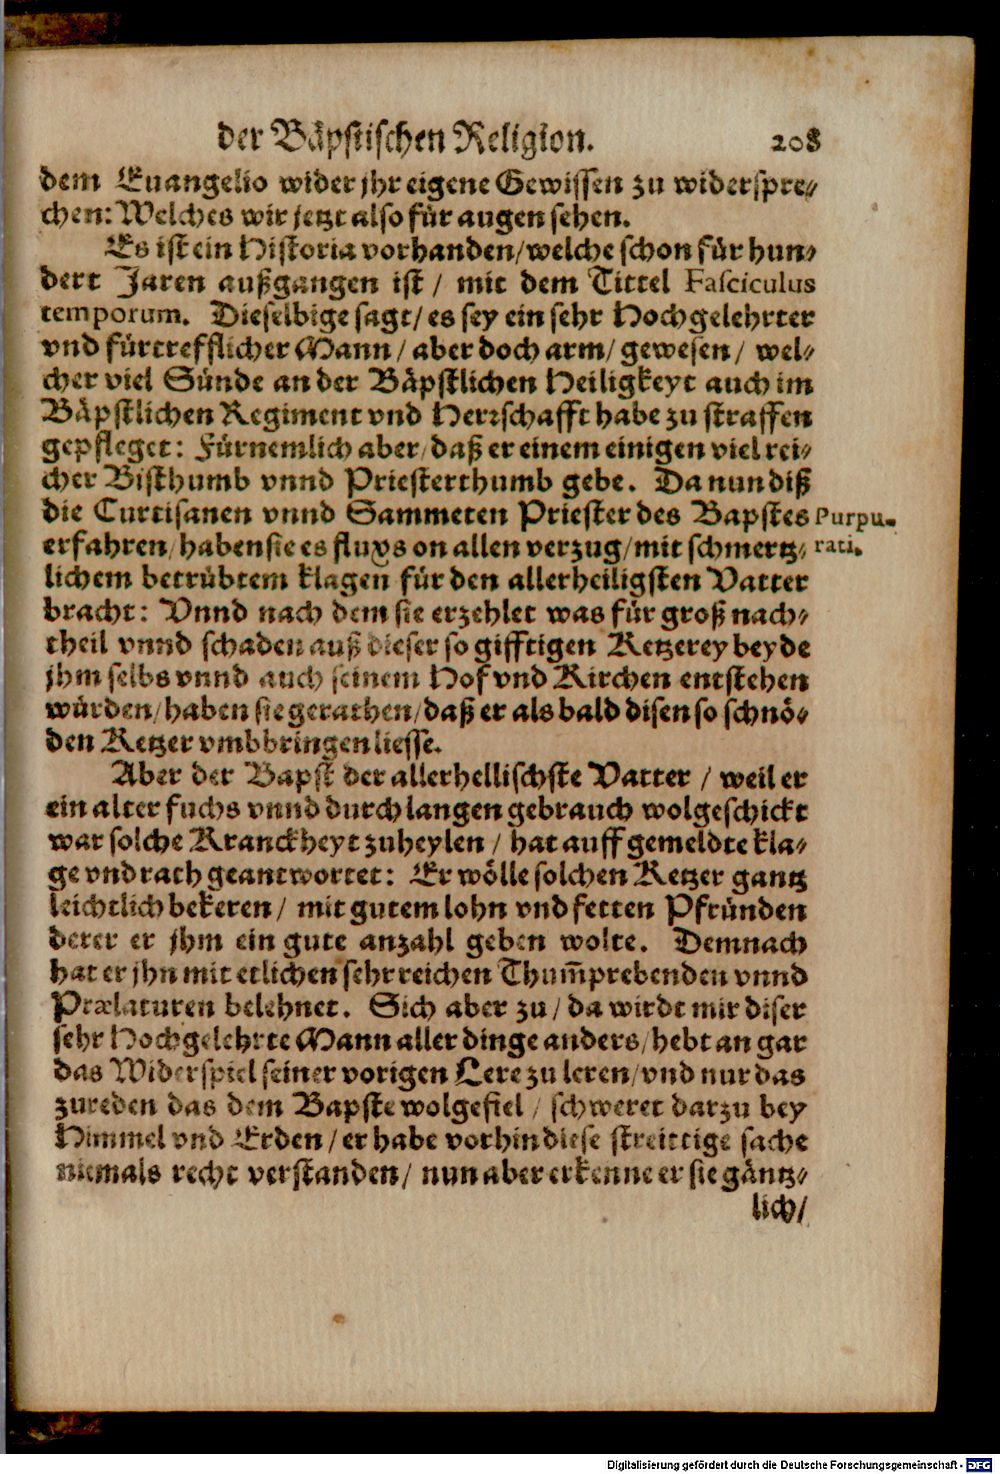 der Bäpstischen Religion. 208
dem Euangelio wider jhr eigene Gewissen zu widerspre-
chen: Welches wir jetzt also für augen sehen.
Es ist ein Historia vorhanden/ welche schon für hun-
dert Jaren außgangen ist / mit dem Tittel Fasciculus
temporum. Dieselbige sagt/ es sey ein sehr Hochgelehrter
vnd fürtrefflicher Mann / aber doch arm/ gewesen / wel-
cher viel Sünde an der Bäpstlichen Heiligkeyt auch im
Bäpstlichen Regiment vnd Herrschafft habe zu straffen
gepfleget: Fürnemlich aber/ daß er einem einigen viel rei-
cher Bisthumb vnnd Priesterthumb gebe. Da nun diß
die Curtisanen vnnd Sammeten Priester des Bapstes Purpu-
erfahren/ haben sie es fluxs on allen verzug/ mit schmertz- rati.
lichem betrübtem klagen für den allerheiligsten Vatter
bracht: Vnnd nach dem sie erzehlet was für groß nach-
theil vnnd schaden auß dieser so gifftigen Ketzerey beyde
jhm selbs vnnd auch seinem Hof vnd Kirchen entstehen
würden/ haben sie gerathen/ daß er als bald disen so schnö-
den Ketzer vmbbringen liesse.
Aber der Bapst der allerhellischste Vatter / weil er
ein alter fuchs vnnd durch langen gebrauch wolgeschickt
war solche Kranckheyt zuheylen / hat auff gemeldte kla-
ge vnd rath geantwortet: Er wölle solchen Ketzer gantz
leichtlich bekeren / mit gutem lohn vnd fetten Pfründen
derer er jhm ein gute anzahl geben wolte. Demnach
hat er jhn mit etlichen sehr reichen Thum̃prebenden vnnd
Prælaturen belehnet. Sich aber zu / da wirdt mir diser
sehr Hochgelehrte Mann aller dinge anders/ hebt an gar
das Widerspiel seiner vorigen Lere zu leren/ vnd nur das
zureden das dem Bapste wolgefiel / schweret darzu bey
Himmel vnd Erden / er habe vorhin diese streittige sache
niemals recht verstanden / nun aber erkenne er sie gäntz-
lich/
Digitalisierung gefördert durch die Deutsche Forschungsgemeinschaft - DFG